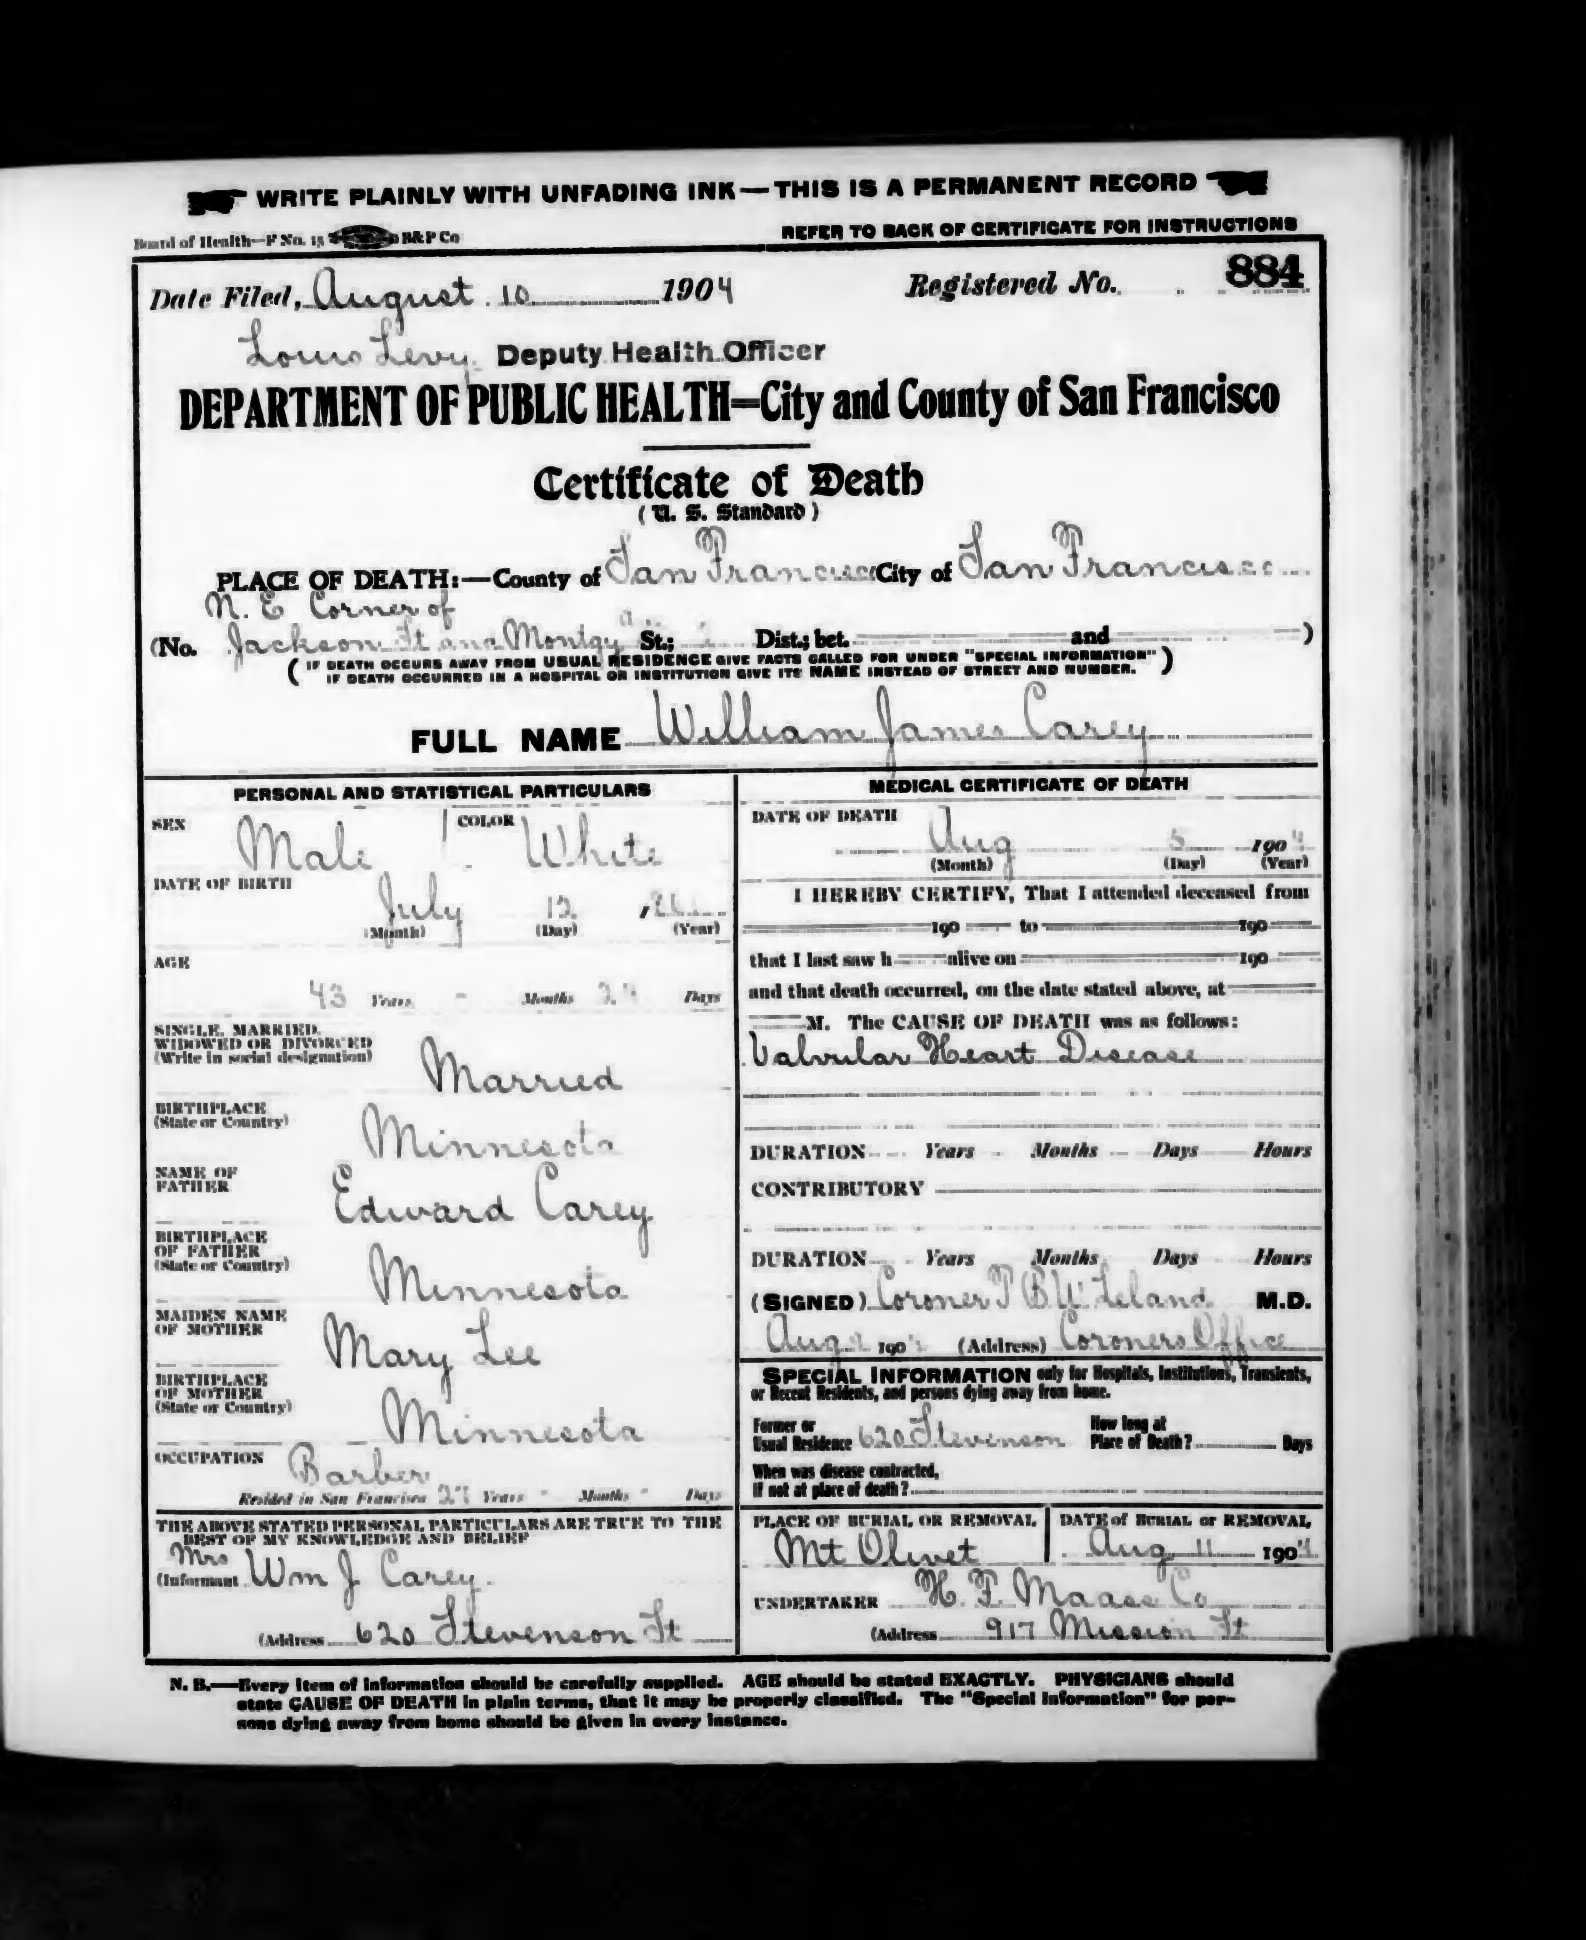 WRITE PLAINLY WITH UNFADING INK—THIS IS A PERMANENT RECORD
Board of Health—F No. 15 B&P Co
REFER TO BACK OF CERTIFICATE FOR INSTRUCTIONS
Date Filed, August 10 1904 Registered No. 884
Louis Levy Deputy Health Officer
DEPARTMENT OF PUBLIC HEALTH=City and County of San Francisco
Certificate of Death
(U. S. Standard)
PLACE OF DEATH:—County of San Francisco City of San Francisco
N. E Corner of
(No. Jackson St and Montgy St.; Dist.; bet. and )
(IF DEATH OCCURS AWAY FROM USUAL RESIDENCE GIVE FACTS CALLED FOR UNDER "SPECIAL INFORMATION"
IF DEATH OCCURRED IN A HOSPITAL OR INSTITUTION GIVE ITS NAME INSTEAD OF STREET AND NUMBER.)
FULL NAME William James Carey
PERSONAL AND STATISTICAL PARTICULARS
SEX Male COLOR White
DATE OF BIRTH July 12
(Month) (Day) (Year)
AGE
43 Years - Months Days
SINGLE, MARRIED,
WIDOWED OR DIVORCED
(Write in social designation)
Married
BIRTHPLACE
(State or Country)
Minnesota
NAME OF
FATHER
Edward Carey
BIRTHPLACE
OF FATHER
(State or Country)
Minnesota
MAIDEN NAME
OF MOTHER
Mary Lee
BIRTHPLACE
OF MOTHER
(State or Country)
Minnesota
OCCUPATION Barber
Resided in San Francisco Years - Months - Days
THE ABOVE STATED PERSONAL PARTICULARS ARE TRUE TO THE
BEST OF MY KNOWLEDGE AND BELIEF
Mrs
(Informant Wm J Carey.
(Address 620 Stevenson St
MEDICAL CERTIFICATE OF DEATH
DATE OF DEATH
Aug 5 1904
(Month) (Day) (Year)
I HEREBY CERTIFY, That I attended deceased from
190 to 190
that I last saw h alive on 190
and that death occurred, on the date stated above, at
M. The CAUSE OF DEATH was as follows:
Valvular Heart Disease
DURATION Years Months Days Hours
CONTRIBUTORY
DURATION Years Months Days Hours
(SIGNED) Coroner T B W Leland M.D.
Aug 190 (Address) Coroners Office
SPECIAL INFORMATION only for Hospitals, Institutions, Transients,
or Recent Residents, and persons dying away from home.
Former or
Usual Residence 620 Stevenson
How long at
Place of Death? Days
When was disease contracted,
If not at place of death?
PLACE OF BURIAL OR REMOVAL
Mt Olivet
DATE of BURIAL or REMOVAL
Aug 11 1904
UNDERTAKER H. F. Maass Co
(Address 917 Mission St
N. B.—Every item of information should be carefully supplied. AGE should be stated EXACTLY. PHYSICIANS should
state CAUSE OF DEATH in plain terms, that it may be properly classified. The "Special Information" for per-
sons dying away from home should be given in every instance.